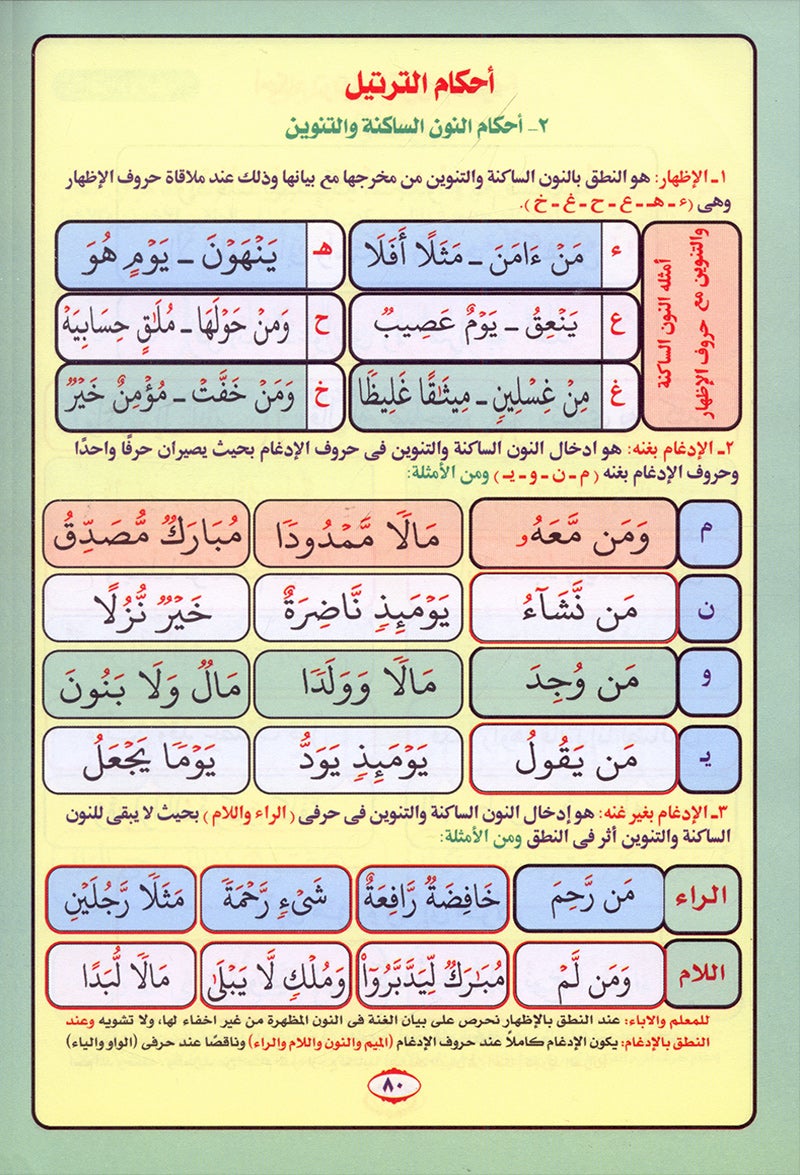 أحكام الترتيل
٢- أحكام النون الساكنة والتنوين
١ـ الإظهار: هو النطق بالنون الساكنة والتنوين من مخرجها مع بيانها وذلك عند ملاقاة حروف الإظهار
وهى (ء - هـ - ع - ح - غ - خ).
أمثله النون الساكنة
والتنوين مع حروف الإظهار
ء مَنْ ءَامَنَ ـ مَثَلًا أَفَلَا هـ يَنْهَوْنَ ـ يَوْمٍ هُوَ
ع يَنْعِقُ ـ يَوْمٌ عَصِيبٌ ح وَمَنْ حَوْلَهَا ـ مُلَٰقٍ حِسَابِيَهْ
غ مِنْ غِسْلِينٍ ـ مِيثَٰقًا غَلِيظًا خ وَمَنْ خَفَّتْ ـ مُؤْمِنٌ خَيْرٌ
٢ـ الإدغام بغنه: هو ادخال النون الساكنة والتنوين فى حروف الإدغام بحيث يصيران حرفًا واحدًا
وحروف الإدغام بغنه (م - ن - و - يـ) ومن الأمثلة:
م وَمَن مَّعَهُۥ مَالًا مَّمْدُودًا مُبَارَكٌ مُّصَدِّقُ
ن مَن نَّشَآءُ يَوْمَئِذٍ نَّاضِرَةٌ خَيْرٌ نُّزُلًا
و مَن وُجِدَ مَالًا وَوَلَدًا مَالٌ وَلَا بَنُونَ
يـ مَن يَقُولُ يَوْمَئِذٍ يَوَدُّ يَوْمًا يَجْعَلُ
٣ـ الإدغام بغير غنه: هو إدخال النون الساكنة والتنوين فى حرفى (الراء واللام) بحيث لا يبقى للنون
الساكنة والتنوين أثر فى النطق ومن الأمثلة:-
الراء مَن رَّحِمَ خَافِضَةٌ رَّافِعَةٌ شَىْءٍ رَّحْمَةً مَثَلًا رَّجُلَيْنِ
اللام وَمَن لَّمْ مُبَٰرَكٌ لِّيَدَّبَّرُوٓا۟ وَمُلْكٍ لَّا يَبْلَىٰ مَالًا لُّبَدًا
للمعلم والاباء: عند النطق بالإظهار نحرص على بيان الغنة فى النون المظهرة من غير اخفاء لها، ولا تشويه وعند
النطق بالإدغام: يكون الإدغام كاملاً عند حروف الإدغام (الميم والنون واللام والراء) وناقصًا عند حرفى (الواو والياء)
٨٠